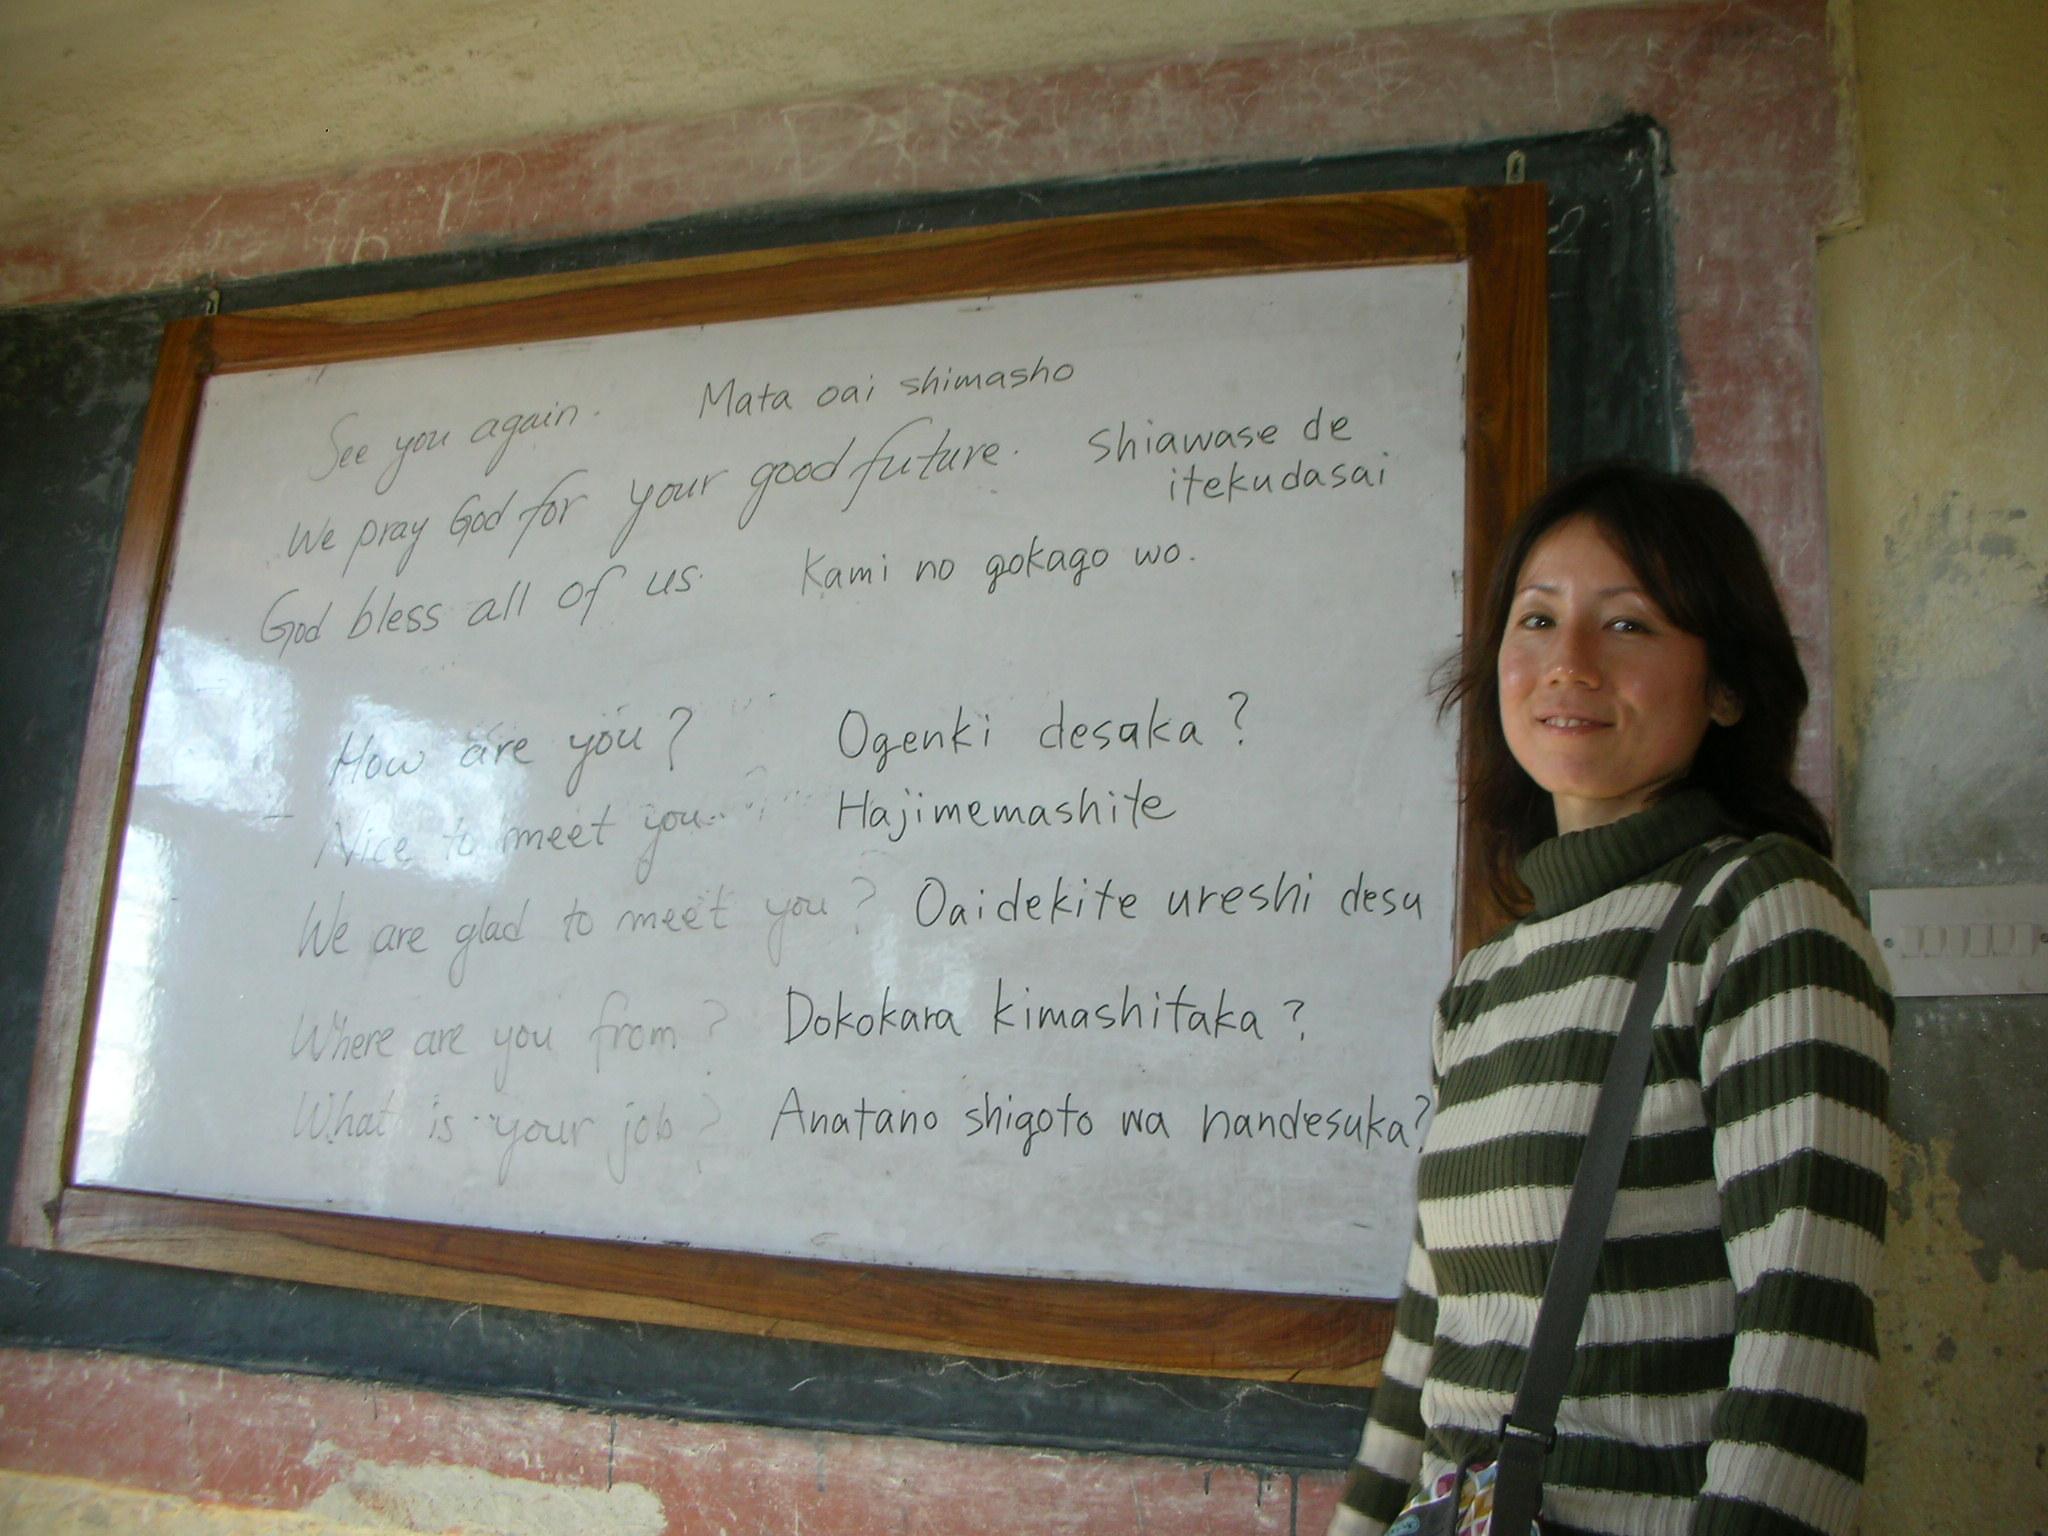 See you again. Mata oai shimasho
We pray God for your good future. Shiawase de
itekudasai
God bless all of us. Kami no gokago wo.
How are you? Ogenki desaka?
Nice to meet you..? Hajimemashite
We are glad to meet you? Oaidekite ureshi desu
Where are you from? Dokokara kimashitaka?
What is your job? Anatano shigoto wa nandesuka?